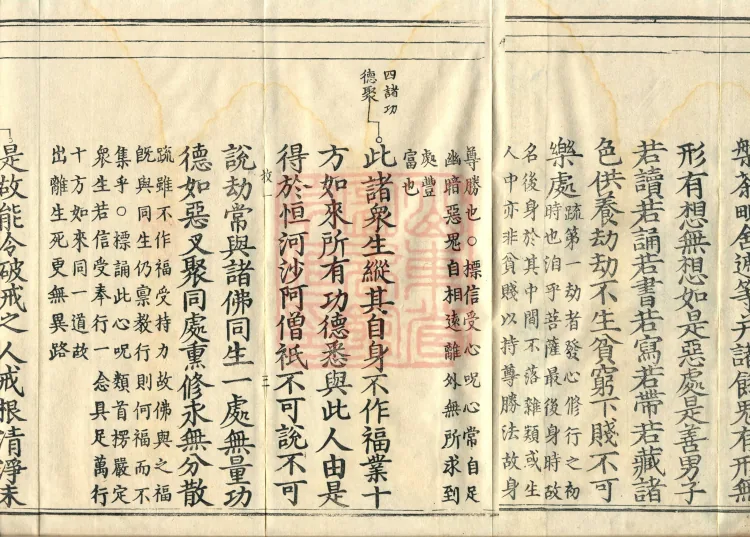 槃茶毗舍遮等并諸餓鬼有形無
形有想無想如是惡處是善男子
若讀若誦若書若寫若帶若藏諸
色供養劫劫不生貧窮下賤不可
樂處疏第一劫者發心修行之初
時也洎乎菩薩最後身時故
名後身於其中間不落雜類或生
人中亦非貧賤以持尊勝法故身
尊勝也○標信受心呪心常自足
幽暗惡鬼自相遠離外無所求到
處豐
富也
四諸功
德聚
此諸衆生縱其自身不作福業十
方如來所有功德悉與此人由是
得於恒河沙阿僧祇不可說不可
校一 三
說劫常與諸佛同生一處無量功
德如惡叉聚同處熏修永無分散
疏雖不作福受持力故佛與之福
既與同生仍禀教行則何福而不
集乎○標誦此心呪類首楞嚴定
衆生若信受奉行一念具足萬行
十方如來同一道故
出離生死更無異路
是故能令破戒之人戒根清淨未